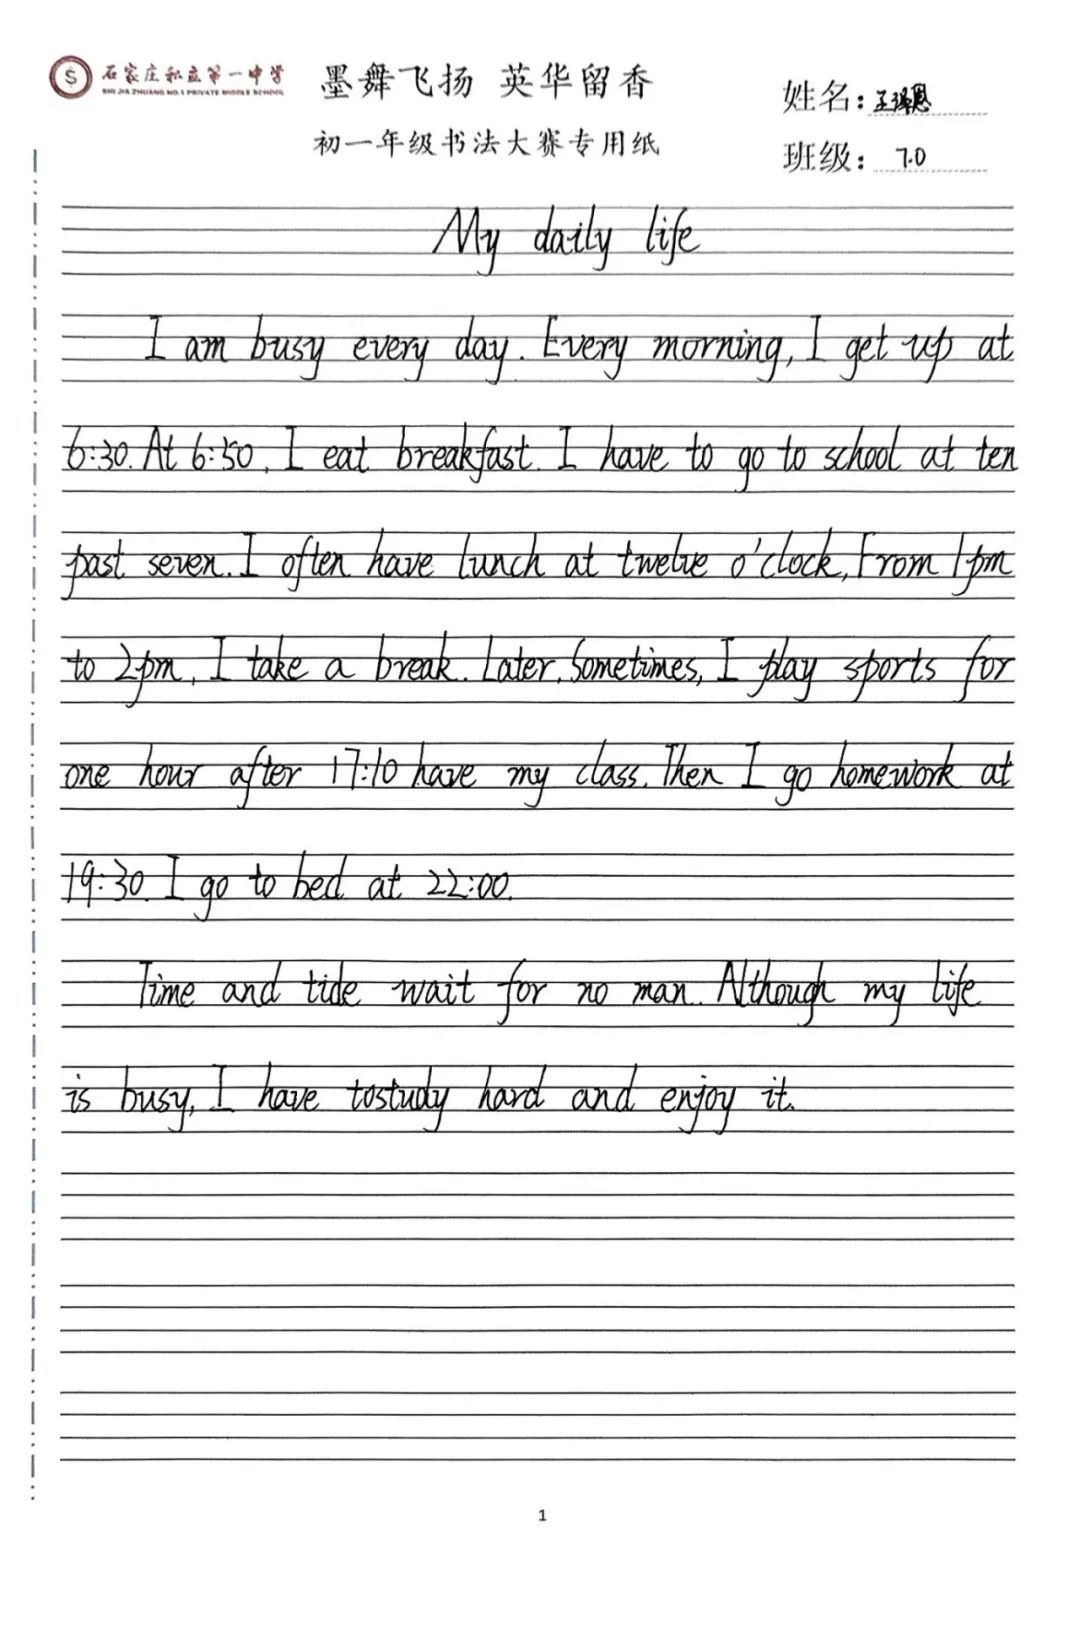 石家庄私立第一中学
SHI JIA ZHUANG NO.1 PRIVATE MIDDLE SCHOOL
墨舞飞扬 英华留香
初一年级书法大赛专用纸
姓名: 王译恩
班级: 7.0
My daily life
I am busy every day. Every morning, I get up at
6:30. At 6:50, I eat breakfast. I have to go to school at ten
past seven. I often have lunch at twelve o'clock, From 1pm
to 2pm, I take a break. Later, Sometimes, I play sports for
one hour after 17:10 have my class. Then I go homework at
19:30. I go to bed at 22:00.
Time and tide wait for no man. Although my life
is busy, I have tostudy hard and enjoy it.
1